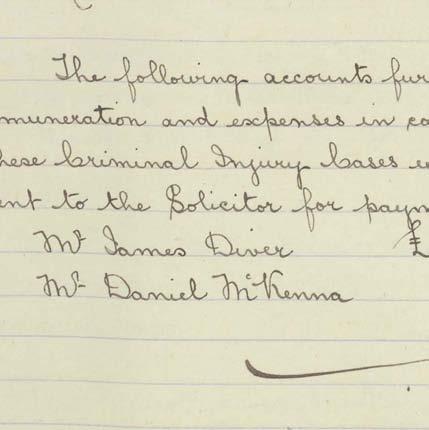 The following accounts fur
muneration and expenses in co
hese Criminal Injury Cases w
ent to the Solicitor for paym
Mr James Diver £
Mr Daniel McKenna